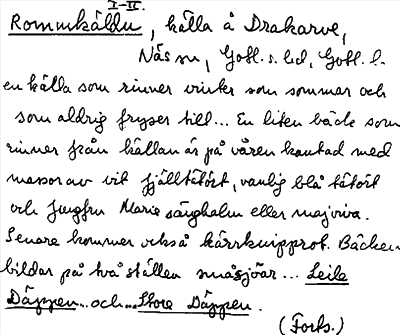 I-II.
Rommkäldu, källa å Drakarve,
Näs sn, Gotl. s. hd, Gotl. l.
en källa som rinner vinter som sommar och
som aldrig fryser till... En liten bäck som
rinner från källan är på våren kantad med
massor av vit fjälltätört, vanlig blå tätört
och Jungfru Marie sänghalm eller majviva.
Senare kommer också kärrknipprot. Bäcken
bildar på två ställen småsjöar... Leile
Däppen och... Store Däppen.
(Forts.)